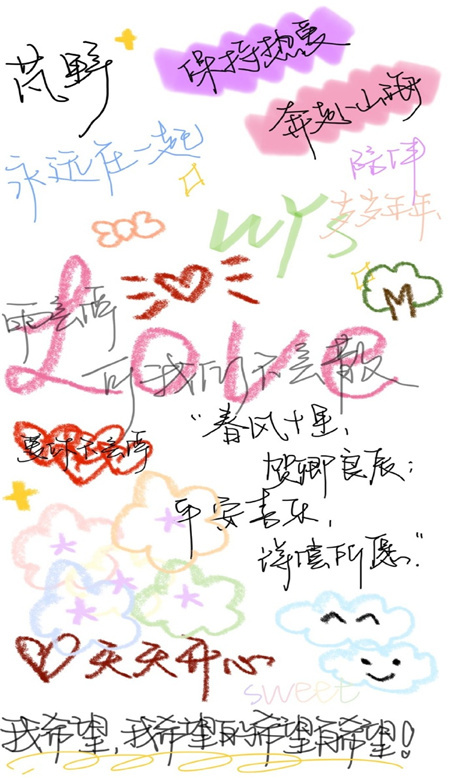 芃野
保持热爱
奔赴山海
永远在一起
陪伴
岁岁年年
WYS
M
Love
雨会停
可我们不会散
爱你不会停
“春风十里、
贺卿良辰;
平安喜乐,
诸偿所愿。”
天天开心
sweet
我希望,我希望的希望有希望!